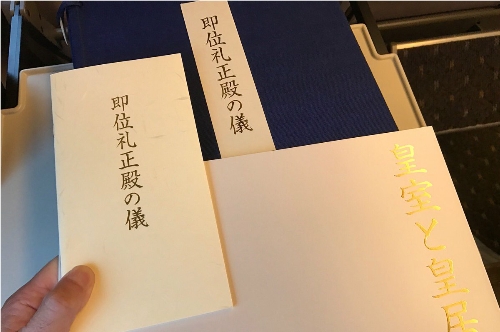 即位礼正殿の儀
即位礼正殿の儀
皇室と皇居